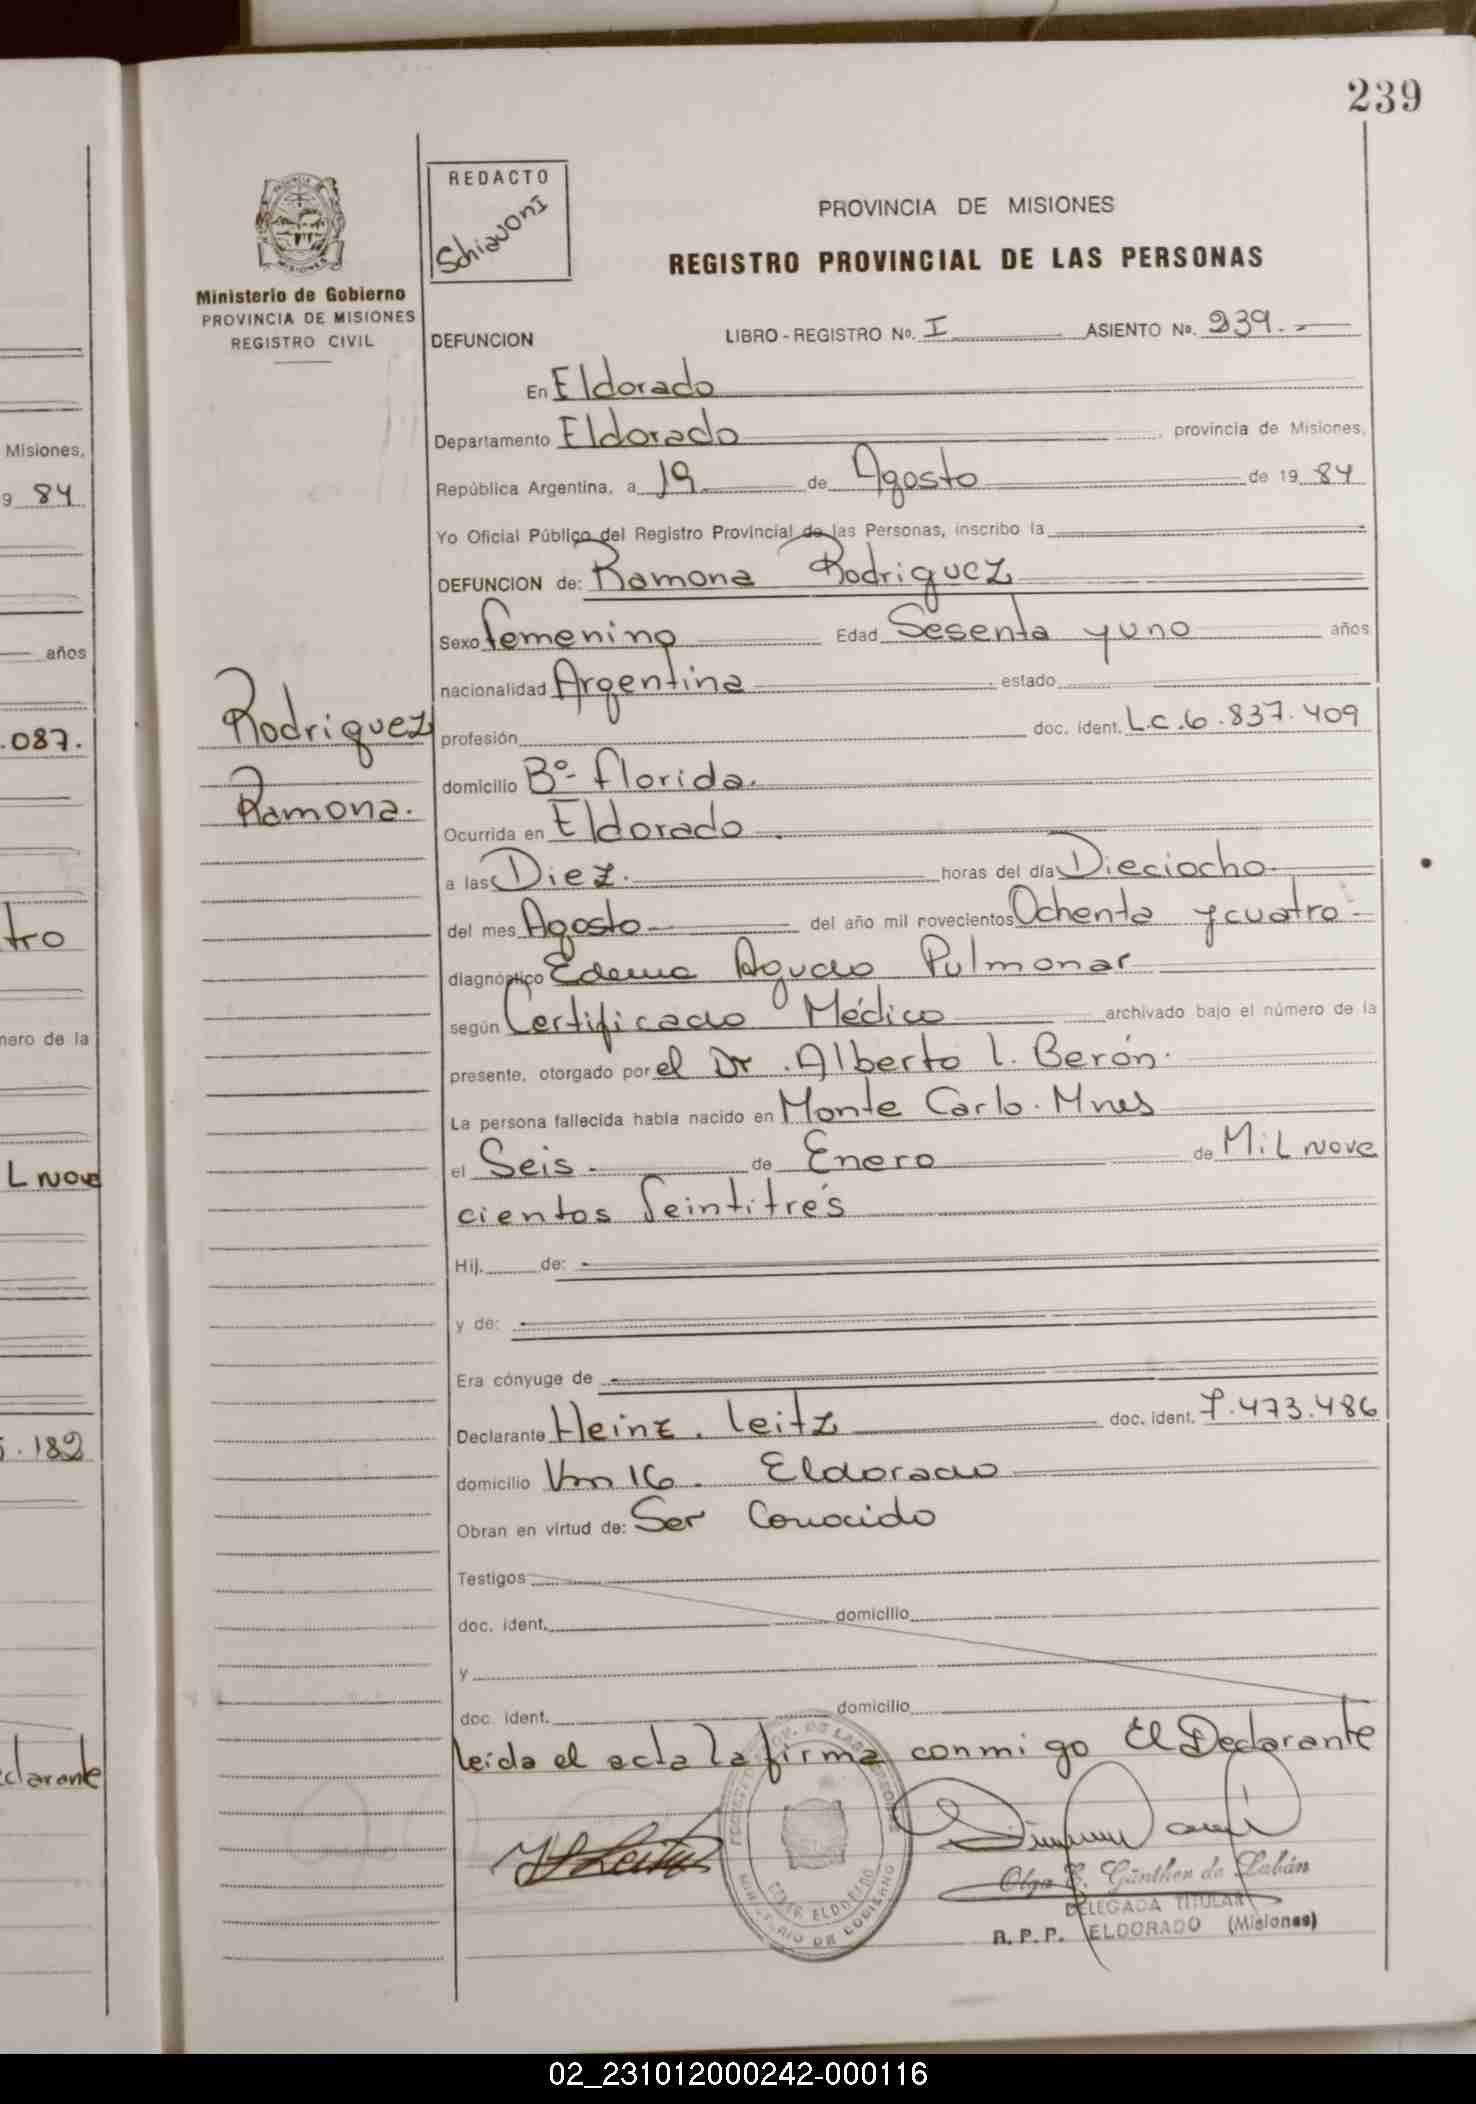 239
REDACTO
Schiavoni
PROVINCIA DE MISIONES
REGISTRO PROVINCIAL DE LAS PERSONAS
Ministerio de Gobierno
PROVINCIA DE MISIONES
REGISTRO CIVIL
DEFUNCION LIBRO - REGISTRO No. I ASIENTO No. 239.-
En Eldorado
Departamento Eldorado, provincia de Misiones,
República Argentina, a 19 de Agosto de 19 84
Yo Oficial Público del Registro Provincial de las Personas, inscribo la
DEFUNCION de: Ramona Rodriguez
Sexo femenino Edad Sesenta y uno años
nacionalidad Argentina estado
profesión doc. ident. L.C.6.837.409
domicilio Bº- florida.
Ocurrida en Eldorado.
a las Diez. horas del día Dieciocho
del mes Agosto del año mil novecientos Ochenta y cuatro-
diagnóptico Edema Agudo Pulmonar
según Certificado Médico archivado bajo el número de la
presente, otorgado por el Dr. Alberto l. Berón.
La persona fallecida había nacido en Monte Carlo. Mnes
el Seis. de Enero de MiL nove
cientos Veintitrés
Hij. de:
y de:
Era cónyuge de
Declarante Heinz. leitz doc. ident. 7.473.486
domicilio Km 16. Eldorado
Obran en virtud de: Ser Conocido
Testigos
doc. ident. domicilio
y
doc. ident. domicilio
leida el acta la firma conmigo El Declarante
Rodriguez
Ramona.
Olga E. Günther de Labán
DELEGADA TITULAR
R. P. P. ELDORADO (Misiones)
MINISTERIO DE GOBIERNO
ELDORADO
Misiones,
9 84
años
.087.
tro
mero de la
L nove
5.182
clarante
02_231012000242-000116